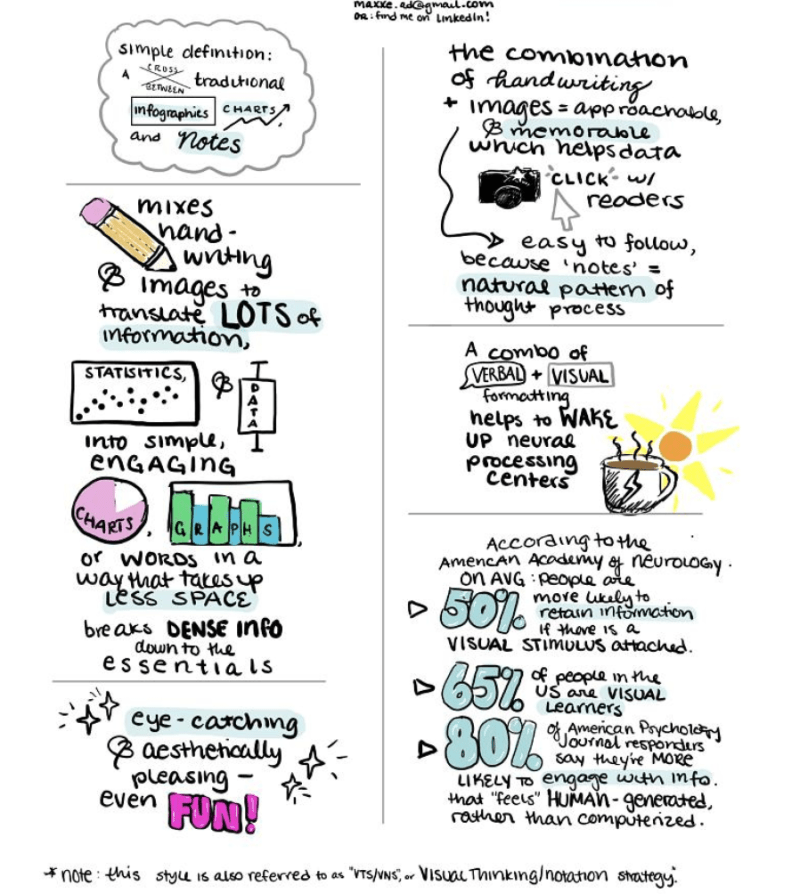 maxxe.ad@gmail.com
OR: find me on LinkedIn!
simple definition:
A CROSS BETWEEN traditional
infographics CHARTS
and Notes
mixes
hand-
writing
& images to
translate LOTS of
information,
STATISITICS, & DATA
into simple,
ENGAGING
CHARTS, GRAPHS,
or WORDS IN a
way that takes up
LESS SPACE
breaks DENSE INFO
down to the
essentials
eye-catching
& aesthetically
pleasing -
even FUN!
the combination
of handwriting
+ images = approachable,
& memorable
which helps data
"CLICK" w/
readers
easy to follow,
because 'notes' =
natural pattern of
thought process
A combo of
VERBAL + VISUAL
formatting
helps to WAKE
UP neural
processing
centers
According to the
American Academy of Neurology.
on AVG: people are
50% more likely to
retain information
if there is a
VISUAL STIMULUS attached.
65% of people in the
US are VISUAL
Learners
80% of American Psychology
Journal responders
say they're MORE
LIKELY TO engage with info.
that "feels" HUMAN-generated,
rather than computerized.
* note: this style is also referred to as "VTS/VNS", or Visual Thinking/notation strategy."